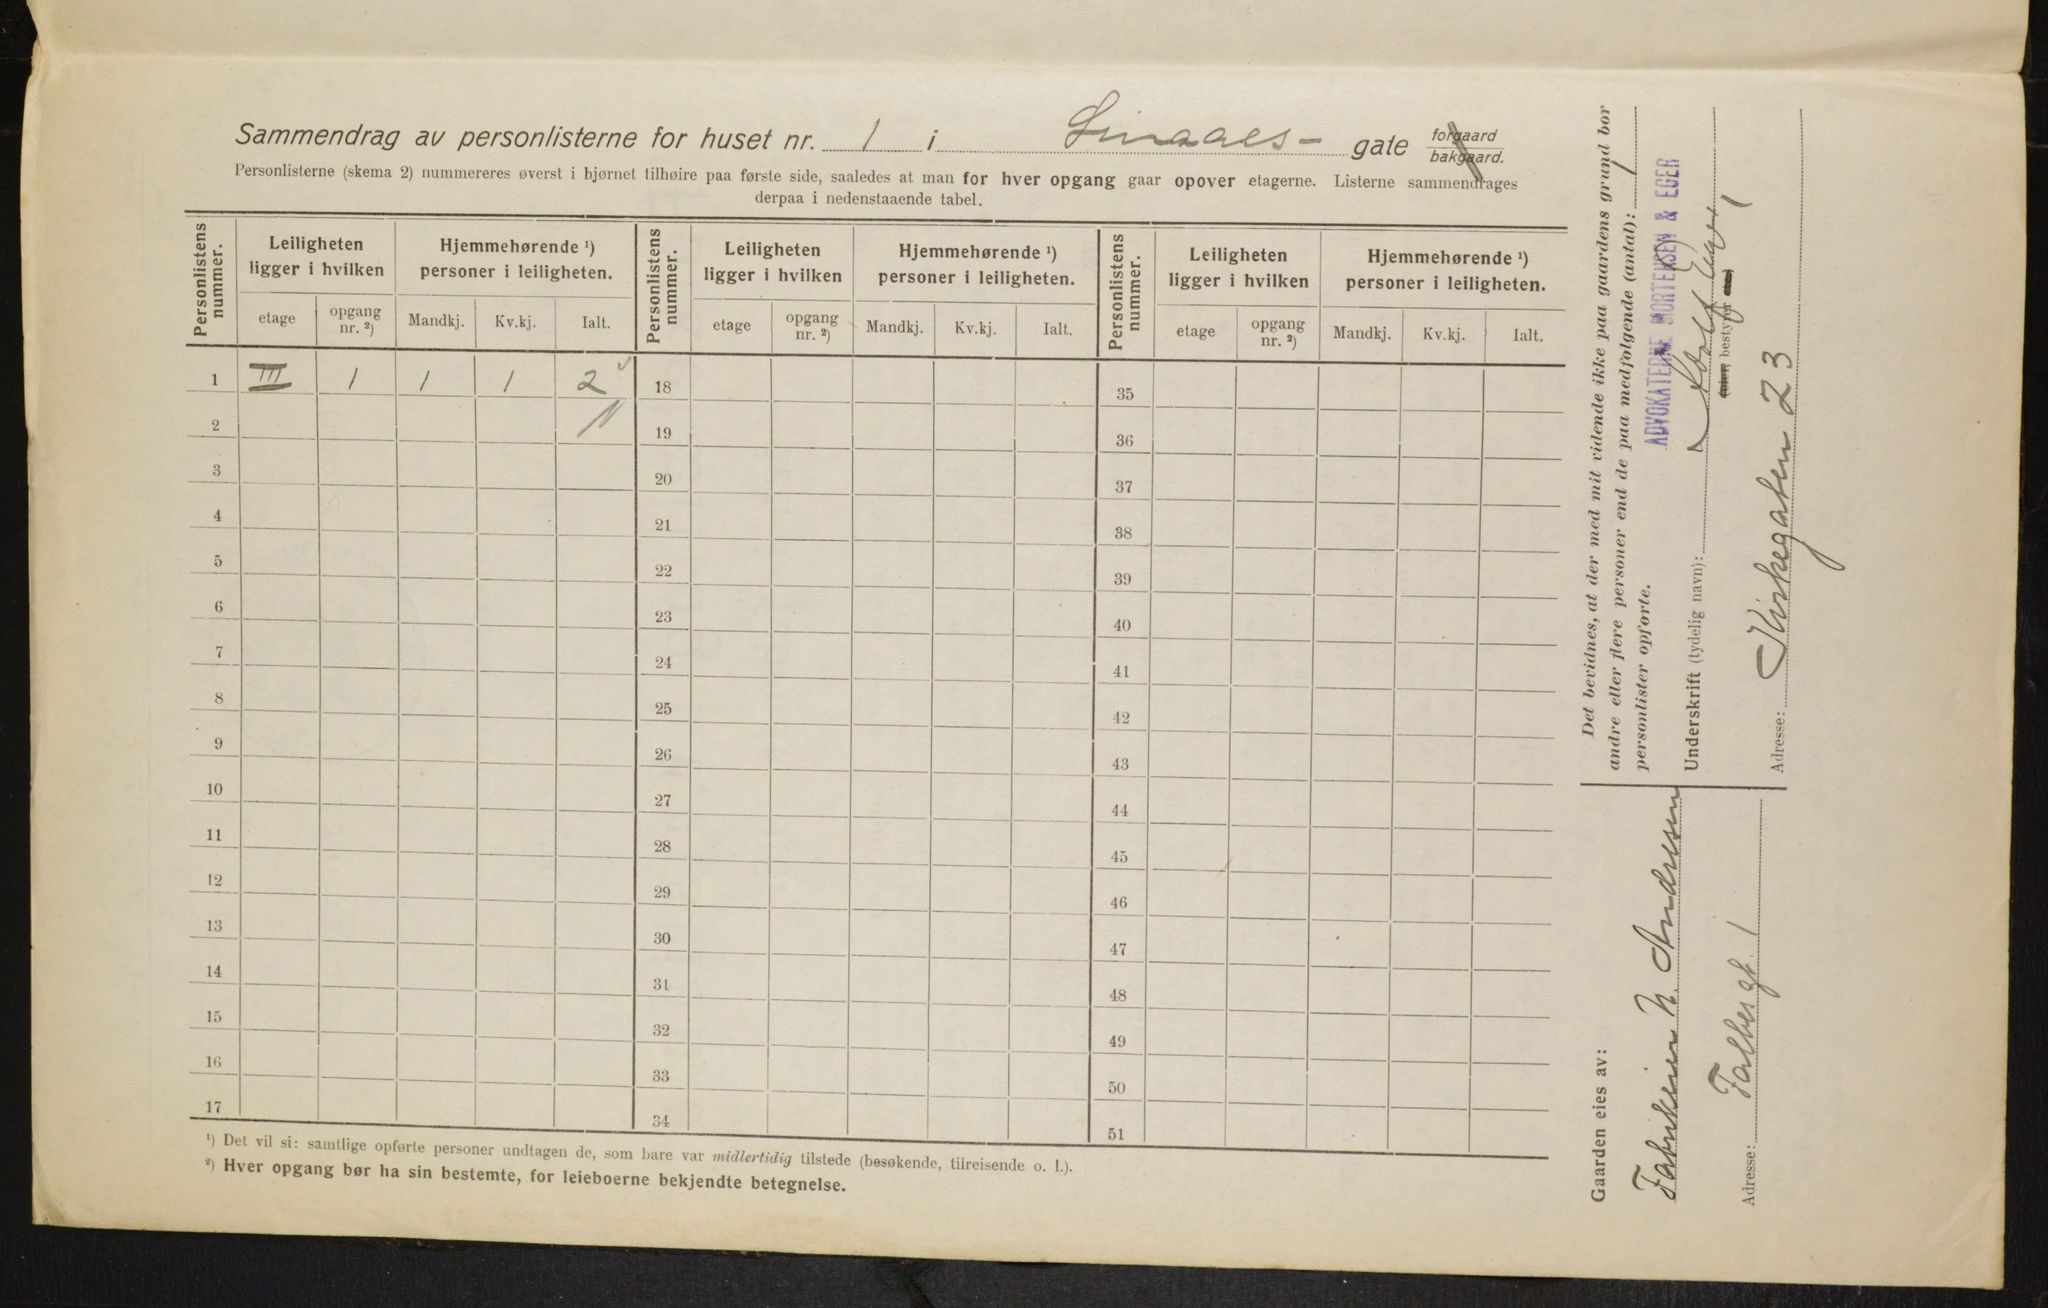 Sammendrag av personlisterne for huset nr. 1 i Smaaes- gate forgaard bakgaard.
Personlisterne (skema 2) nummereres øverst i bjørnet tilhøire paa første side, saaledes at man for hver opgang gaar opover etagerne. Listerne sammendrages
derpaa i nedenstaaende tabel.
Personlistens nummer. Leiligheten ligger i hvilken Hjemmehørende ¹) personer i leiligheten. Personlistens nummer. Leiligheten ligger i hvilken Hjemmehørende ¹) personer i leiligheten. Personlistens nummer. Leiligheten ligger i hvilken Hjemmehørende ¹) personer i leiligheten.
etage opgang nr. ²) Mandkj. Kv.kj. Ialt. etage opgang nr. ²) Mandkj. Kv.kj. Ialt. etage opgang nr. ²) Mandkj. Kv.kj. Ialt.
1 III 1 1 1 2 18 35
2 19 36
3 20 37
4 21 38
5 22 39
6 23 40
7 24 41
8 25 42
9 26 43
10 27 44
11 28 45
12 29 46
13 30 47
14 31 48
15 32 49
16 33 50
17 34 51
¹) Det vil si: samtlige opførte personer undtagen de, som bare var midlertidig tilstede (besøkende, tilreisende o. l.).
²) Hver opgang bør ha sin bestemte, for leieboerne bekjendte betegnelse.
Det bevidnes, at der med mit vidende ikke paa gaardens grund bor
andre eller flere personer end de paa medfølgende (antal): 1
personlister opførte.
ADVOKATERNE MORTENSEN & EGER
Underskrift (tydelig navn): Adolf Eger
(eier, bestyrer
Adresse: Kirkegaten 23
Gaarden eies av:
Fabrikeier N. Andresen
Adresse: Falbesgt. 1